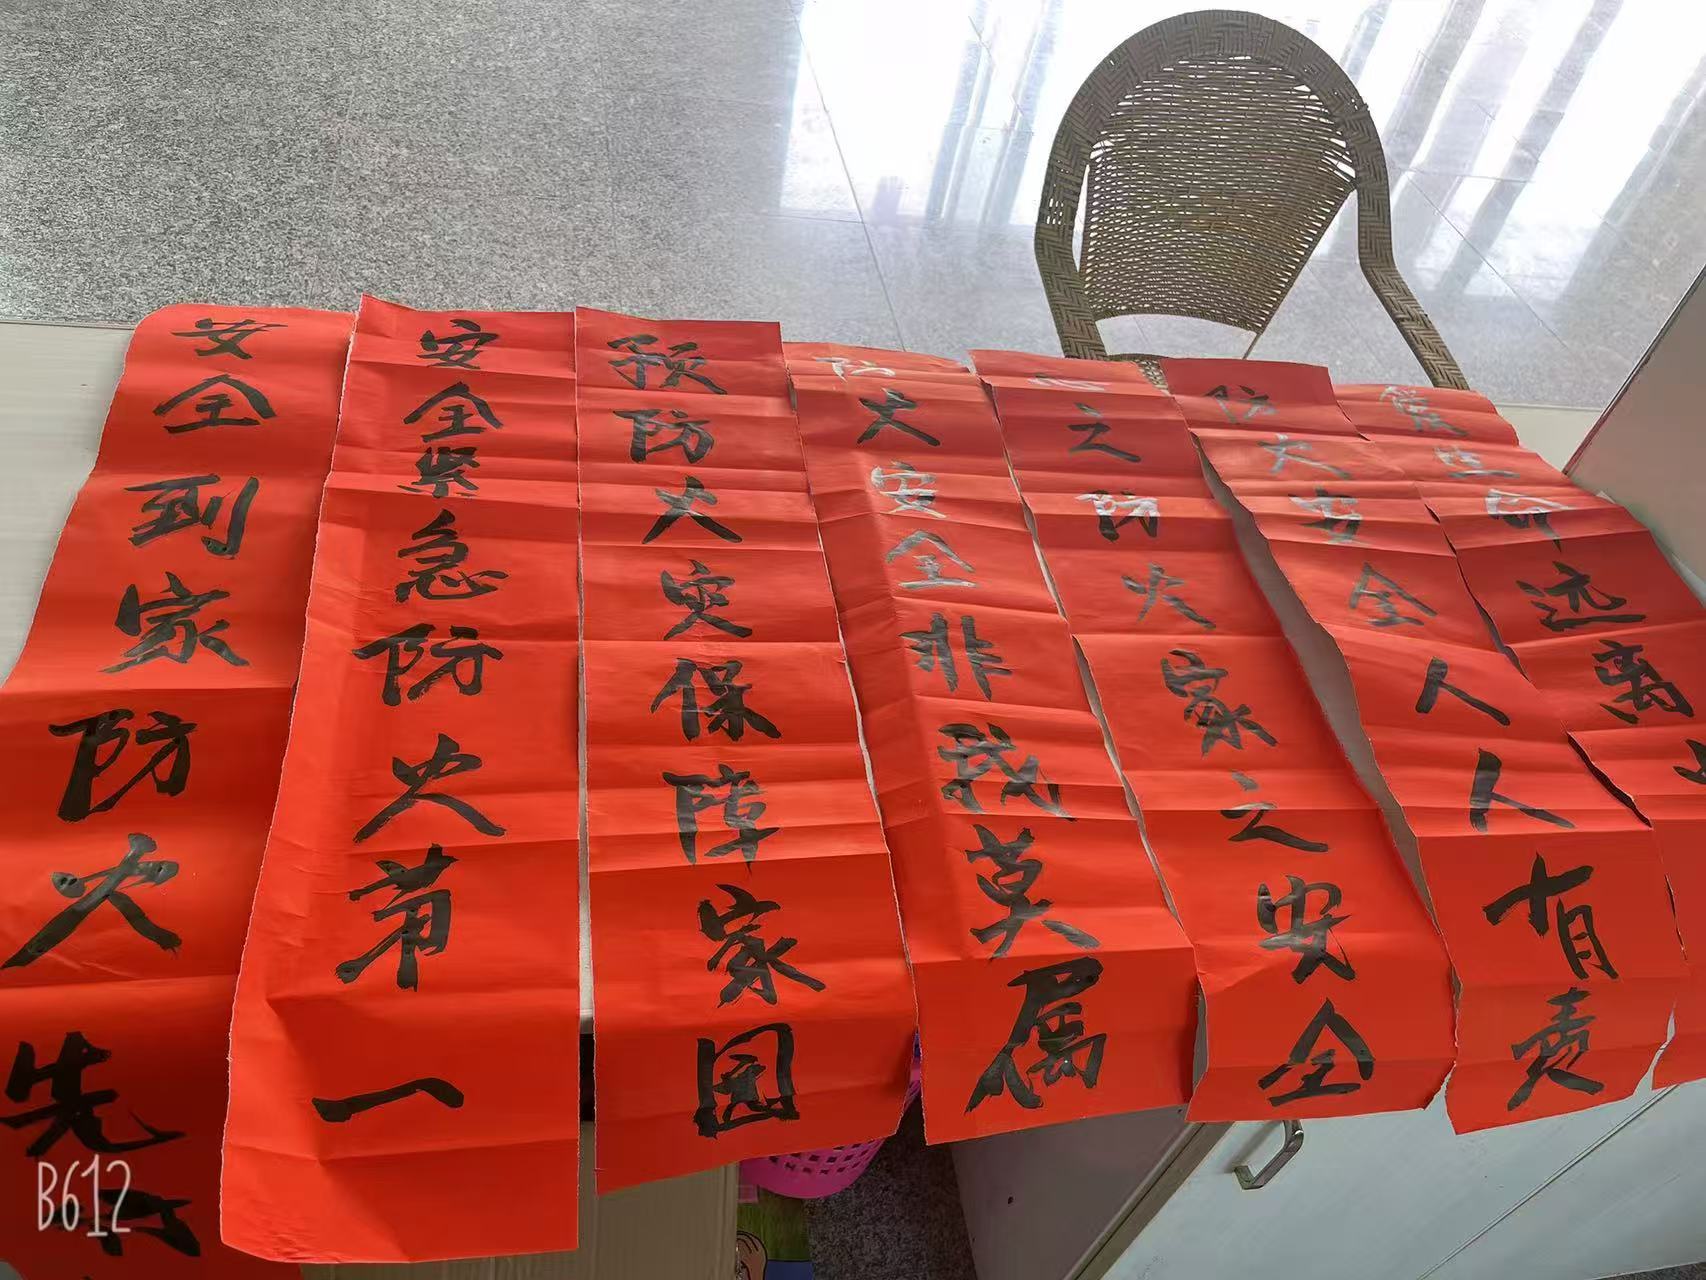 安全到家防火先行
安全紧急防火第一
预防火灾保障家园
防火安全非我莫属
心之防火家之安全
防火安全人人有责
珍惜生命远离火
B612